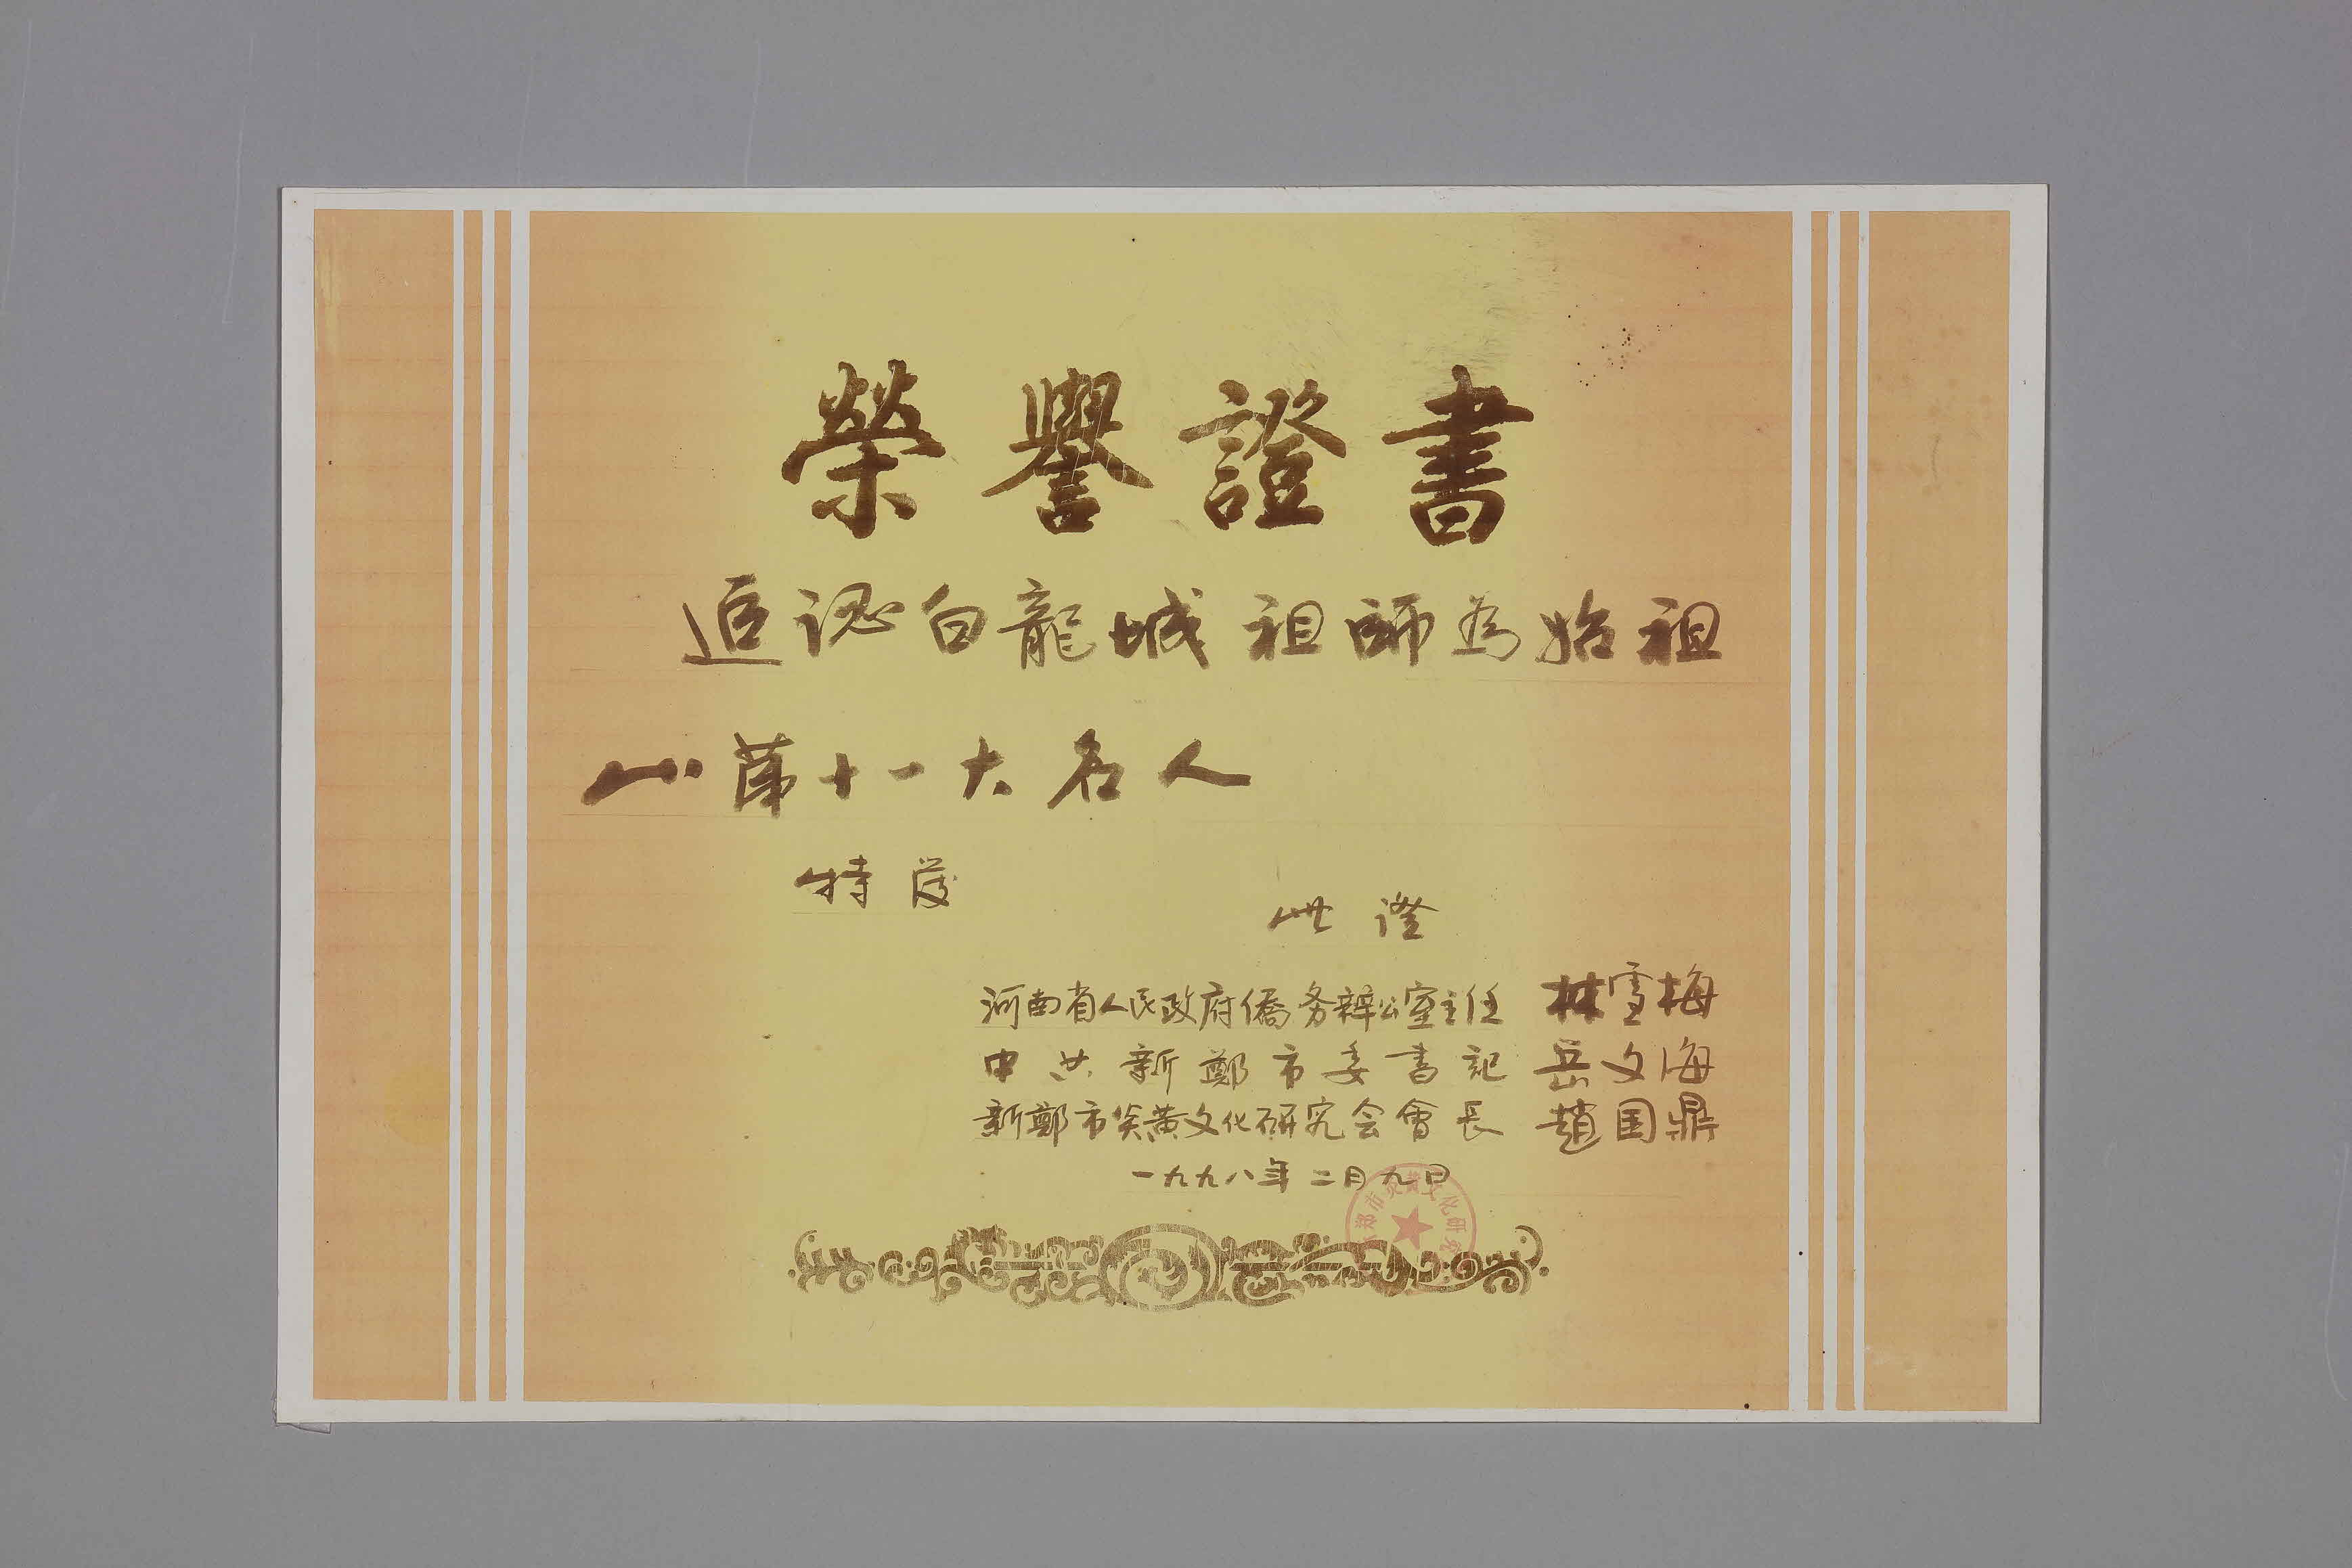 榮譽證書
追認白龍城祖師為始祖
山第十一大名人
特發
此證
河南省人民政府僑务辦公室主任 林雪梅
中共新鄭市委書記 岳文海
新鄭市炎黃文化研究会會長 趙国鼎
一九九八年二月九日
郑市炎黄文化研究